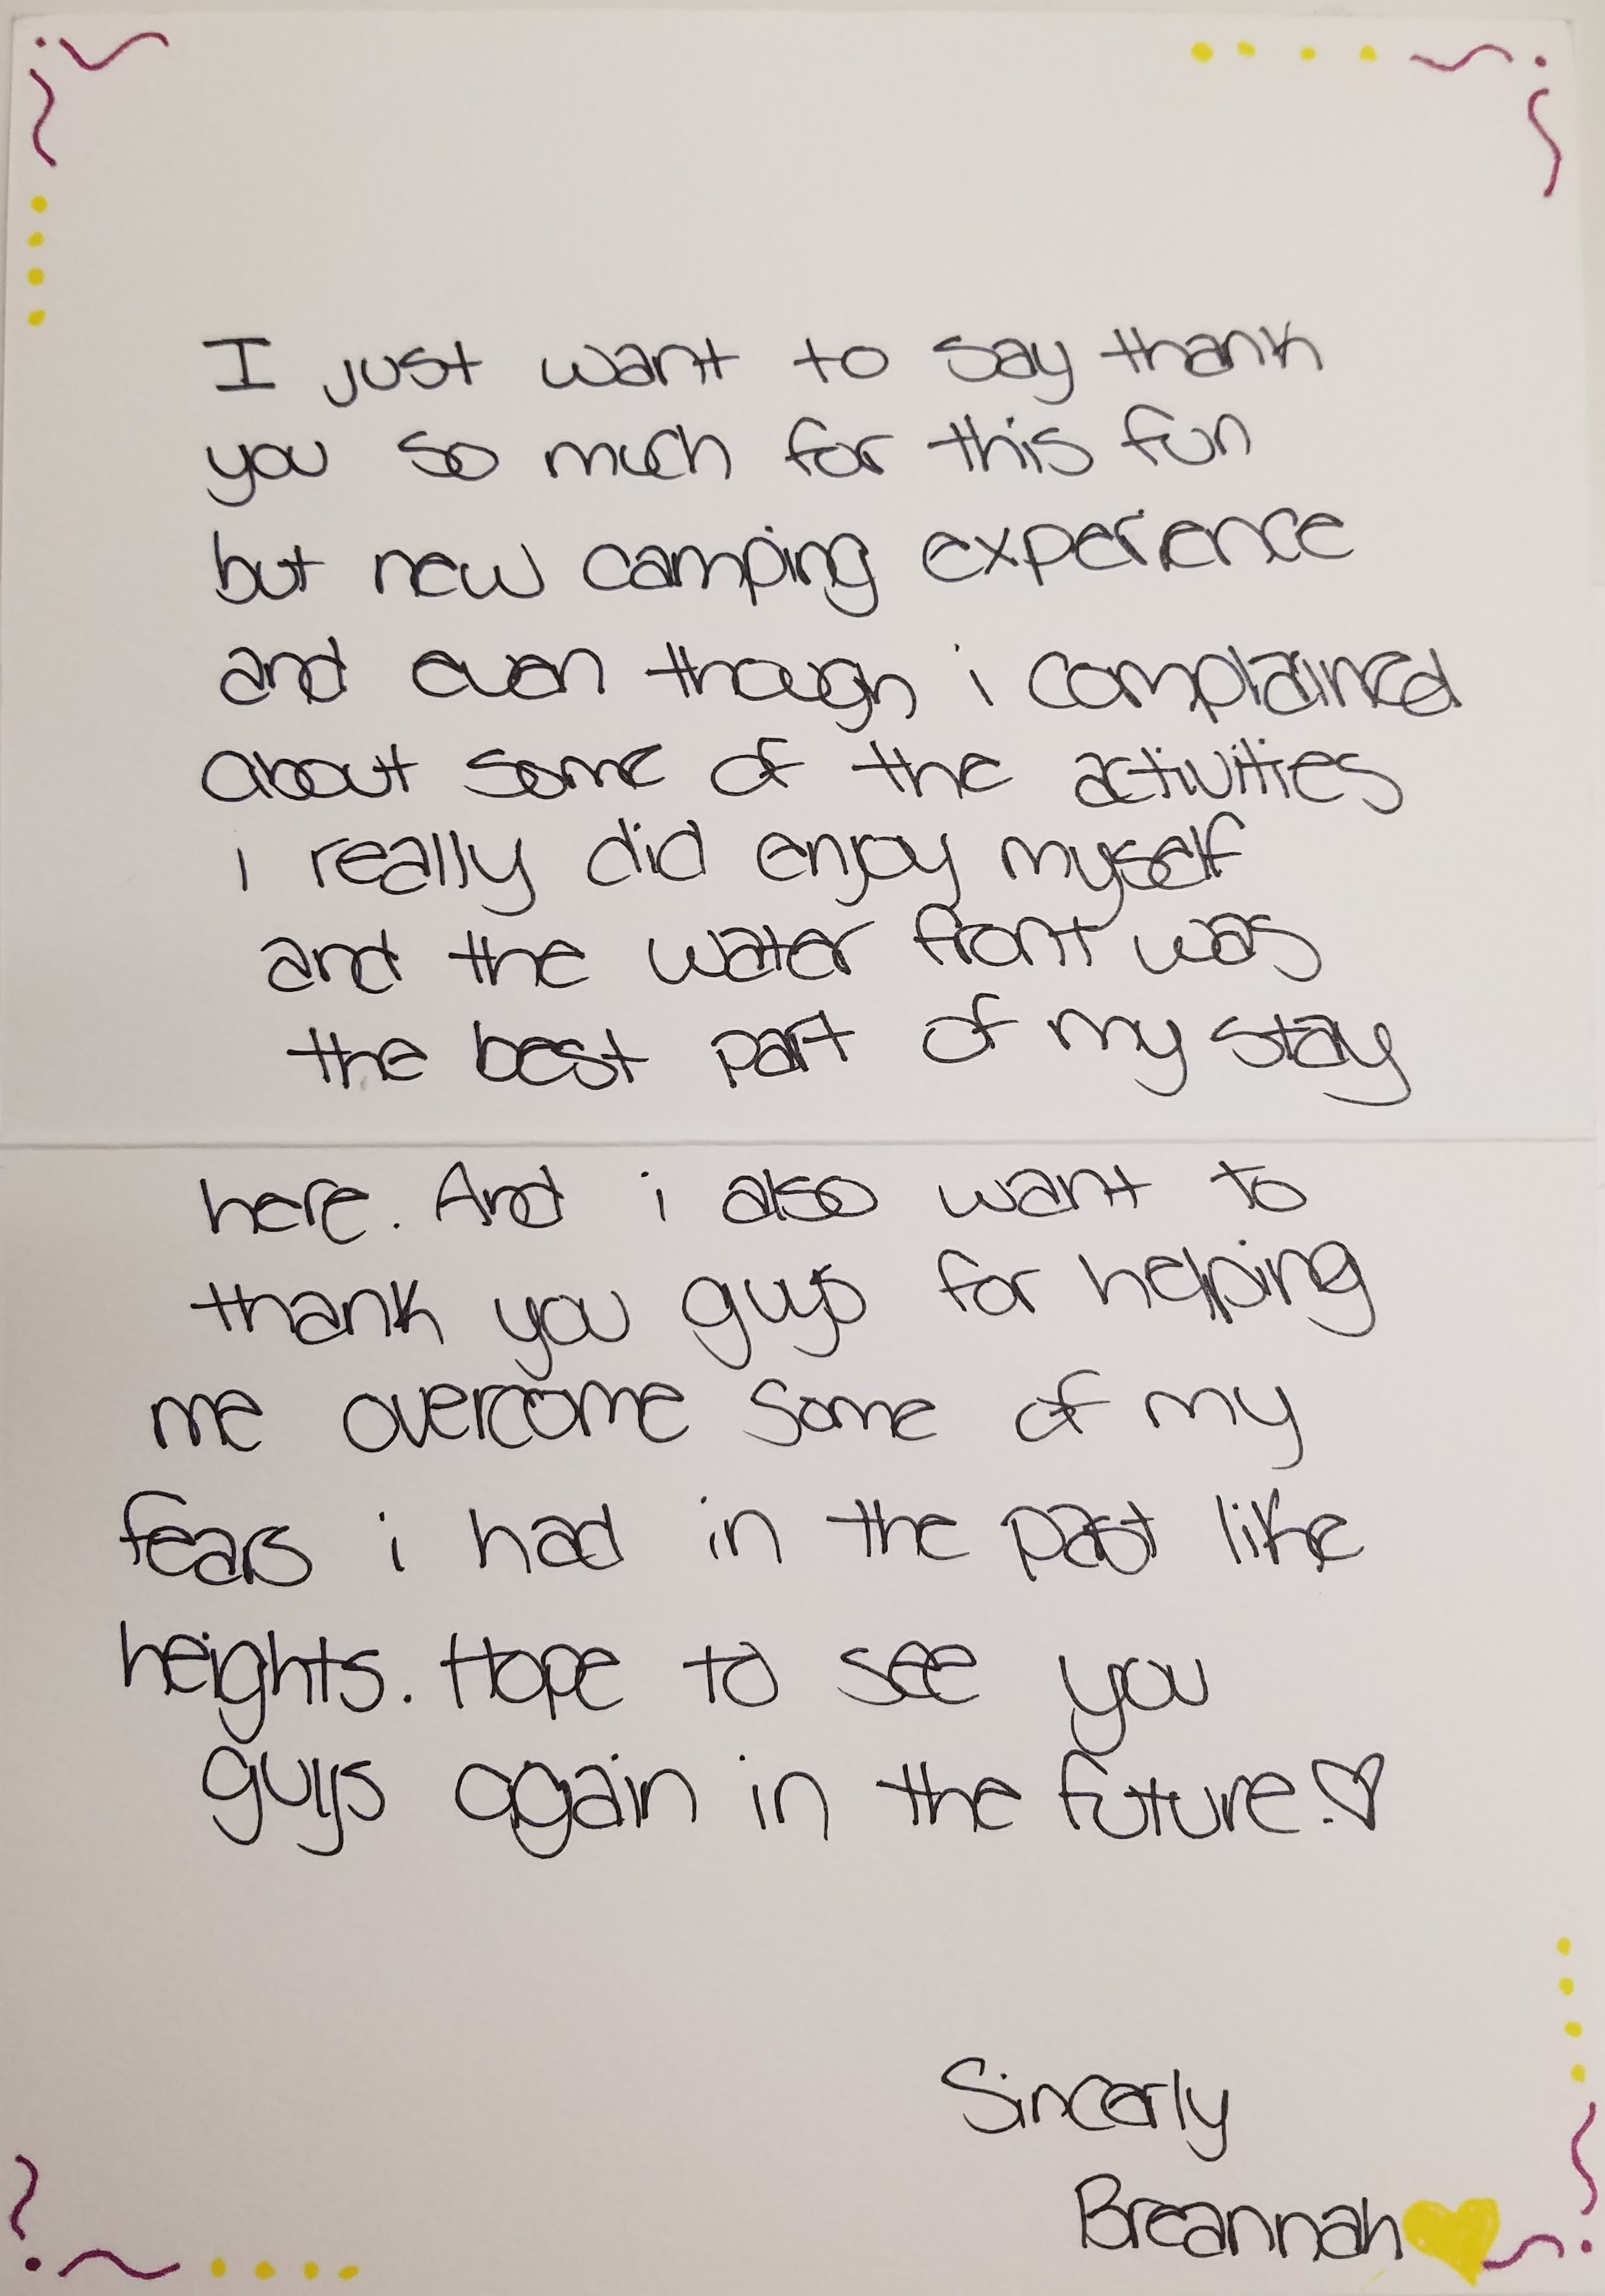 I just want to say thank
you so much for this fun
but new camping experience
and even though i complained
about some of the activities
i really did enjoy myself
and the water front was
the best part of my stay
here. And i also want to
thank you guys for helping
me overcome some of my
fears i had in the past like
heights. Hope to see you
guys again in the future.♡
Sincerly
Breannah